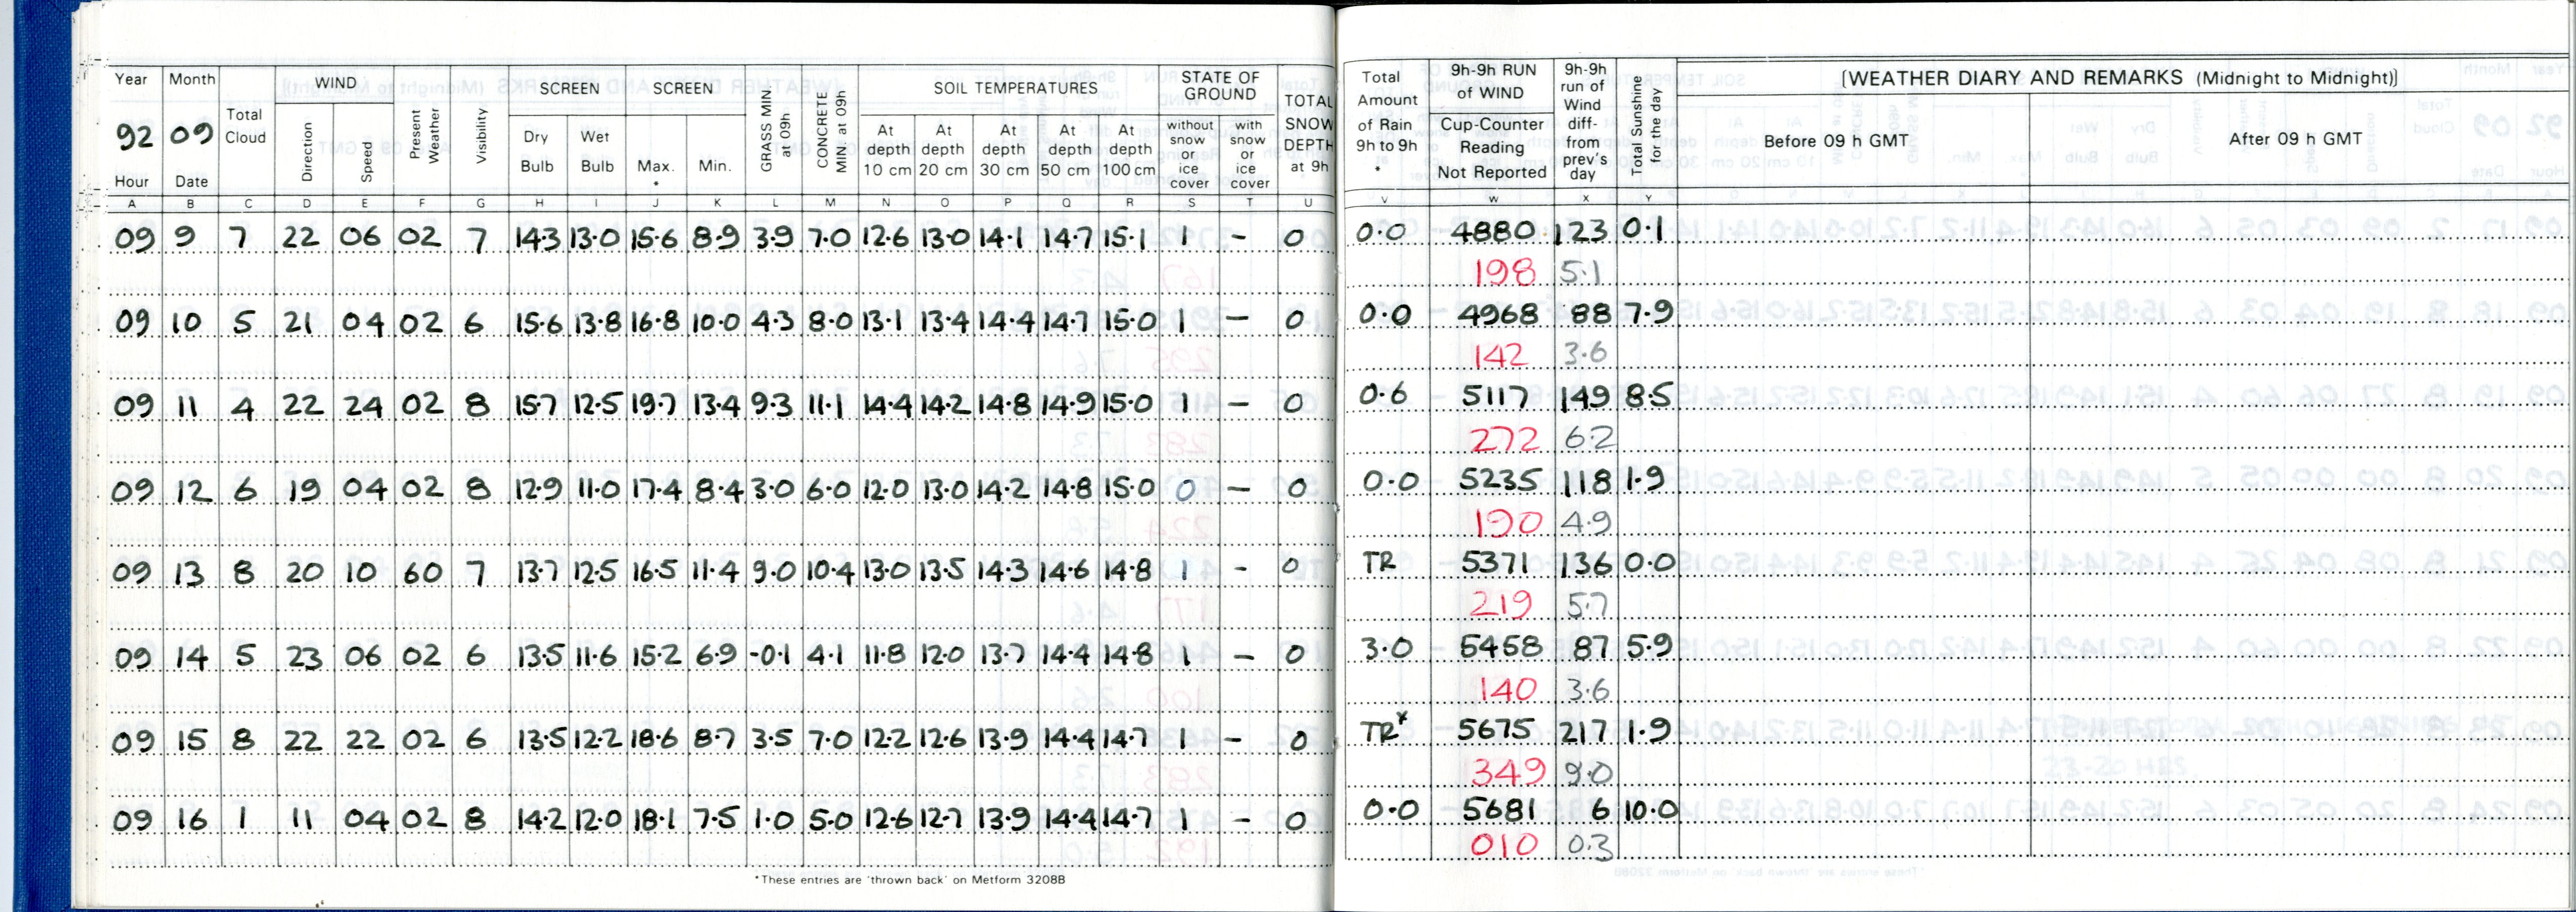 Year Month Total Cloud WIND Present Weather Visibility SCREEN SCREEN GRASS MIN at 09h CONCRETE MIN at 09h SOIL TEMPERATURES STATE OF GROUND TOTAL SNOW DEPTH at 9h Total Amount of Rain 9h to 9h * 9h-9h RUN of WIND 9h-9h run of Wind diff- from prev's day Total Sunshine for the day [WEATHER DIARY AND REMARKS (Midnight to Midnight)]
92 09 Direction Speed Dry Bulb Wet Bulb Max. * Min. At depth 10 cm At depth 20 cm At depth 30 cm At depth 50 cm At depth 100 cm without snow or ice cover with snow or ice cover Cup-Counter Reading Not Reported Before 09 h GMT After 09 h GMT
Hour Date
A B C D E F G H I J K L M N O P Q R S T U V W X Y
09 9 7 22 06 02 7 14.3 13.0 15.6 8.9 3.9 7.0 12.6 13.0 14.1 14.7 15.1 1 – 0 0.0 4880 123 0.1
198 5.1
09 10 5 21 04 02 6 15.6 13.8 16.8 10.0 4.3 8.0 13.1 13.4 14.4 14.7 15.0 1 – 0 0.0 4968 88 7.9
142 3.6
09 11 4 22 24 02 8 15.7 12.5 19.7 13.4 9.3 11.1 14.4 14.2 14.8 14.9 15.0 1 – 0 0.6 5117 149 8.5
272 6.2
09 12 6 19 04 02 8 12.9 11.0 17.4 8.4 3.0 6.0 12.0 13.0 14.2 14.8 15.0 0 – 0 0.0 5235 118 1.9
190 4.9
09 13 8 20 10 60 7 13.7 12.5 16.5 11.4 9.0 10.4 13.0 13.5 14.3 14.6 14.8 1 - 0 TR 5371 136 0.0
219 5.7
09 14 5 23 06 02 6 13.5 11.6 15.2 6.9 -0.1 4.1 11.8 12.0 13.7 14.4 14.8 1 – 0 3.0 5458 87 5.9
140 3.6
09 15 8 22 22 02 6 13.5 12.2 18.6 8.7 3.5 7.0 12.2 12.6 13.9 14.4 14.7 1 - 0 TR* 5675 217 1.9
349 9.0
09 16 1 11 04 02 8 14.2 12.0 18.1 7.5 1.0 5.0 12.6 12.7 13.9 14.4 14.7 1 - 0 0.0 5681 6 10.0
010 0.3
*These entries are 'thrown back' on Metform 3208B